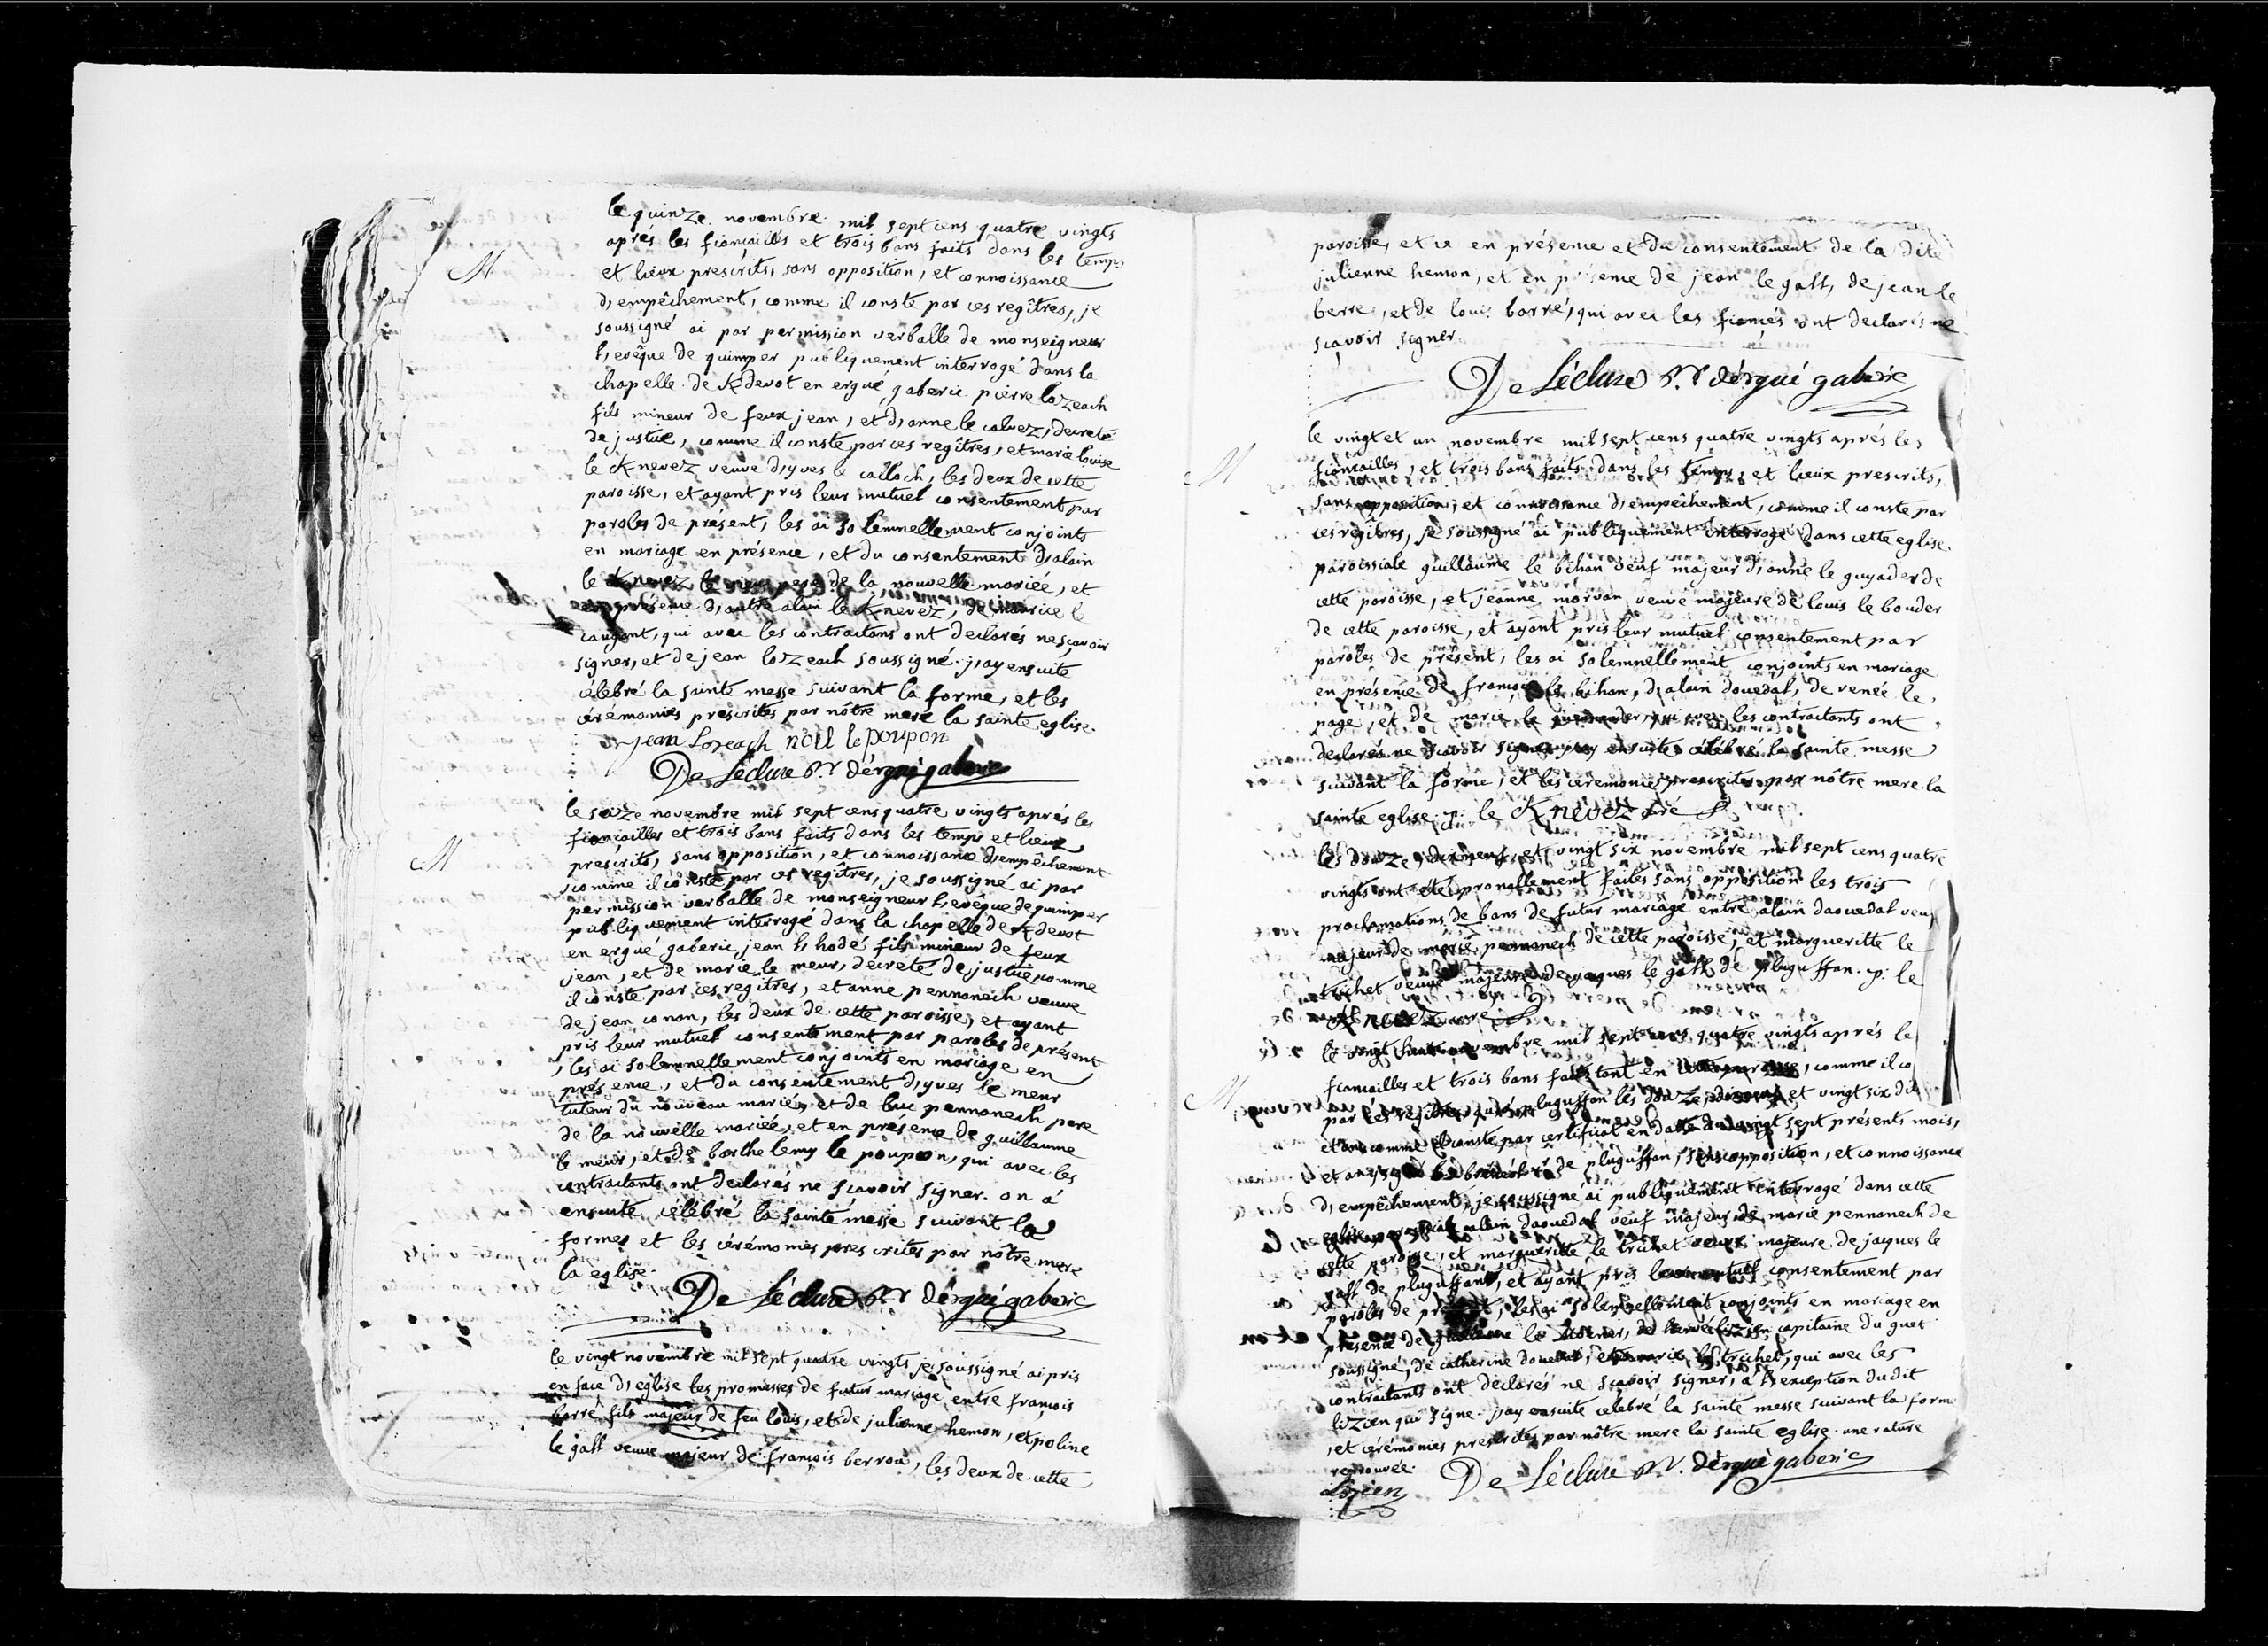 le quinze novembre mil sept cens quatre vingts
aprés les fiançailles et trois bans faits dans les temps
M
et lieux prescrits, sans opposition, et connoissance
d'empêchement, comme il conste par ces regîtres, je
soussigné ai par permission verballe de monseigneur
l'evêque de quimper publiquement interrogé dans la
chapelle de Kdevot en ergué gaberic pierre lozeach
fils mineur de feux jean, et d'anne le calvez, decreté
de justice, comme il conste par ces regîtres, et marie louise
le Knevez veuve d'yves le calloch, les deux de cette
paroisse, et ayant pris leur mutuel consentement par
paroles de présent, les ai solemnellement conjoints
en mariage en présence, et du consentement d'alain
le Knevez le vieux pere de la nouvelle mariée, et
en présence d'autre alain le Knevez, de maurice le
caugant, qui avec les contractans ont declarés ne sçavoir
signer, et de jean lozeach soussigné. j'ay ensuite
célébré la sainte messe suivant la forme, et les
cérémonies prescrites par nôtre mere la sainte eglise.
jean Lozeach noel le poupon
De Lécluse Rr dérgué gaberic
le seize novembre mil sept cens quatre vingts aprés les
fiançailles et trois bans faits dans les temps et lieux
M
prescrits, sans opposition, et connoissance d'empêchement
comme il conste par ces regîtres, je soussigné ai par
permission verballe de monseigneur l'evêque de quimper
publiquement interrogé dans la chapelle de Kdevot
en ergué gaberic jean l'hodé fils mineur de feux
jean, et de marie le meur, decreté de justice, comme
il conste par ces regîtres, et anne pennanech veuve
de jean conan, les deux de cette paroisse, et ayant
pris leur mutuel consentement par paroles de présent
, les ai solemnellement conjoints en mariage en
présence, et du consentement d'yves le meur
tuteur du nouveau marié, et de luc pennanech pere
de la nouvelle mariée, et en présence de guillaume
le meur, et de barthelemy le poupon, qui avec les
contractants ont declarés ne sçavoir signer. on a
ensuite célébré la sainte messe suivant la
forme, et les cérémonies prescrites par nôtre mere
la eglise.
De Lécluse Rr dérgué gaberic
le vingt novembre mil sept quatre vingts je soussigné ai pris
en face d'eglise les promesses de futur mariage entre françois
barré fils majeur de feu louis, et de julienne hemon, et poline
le gall veuve majeur de françois berrou, les deux de cette
paroisse, et ce en présence et du consentement de la dite
julienne hemon, et en présence de jean le gall, de jean le
berre, et de louis barré, qui avec les fiancés ont declarés ne
sçavoir signer.
De Lécluse Rr dérgué gaberic
le vingt et un novembre mil sept cens quatre vingts aprés les
M
fiançailles, et trois bans faits dans les temps, et lieux prescrits,
sans opposition, et connoissance d'empêchement, comme il conste par
ces regîtres, je soussigné ai publiquement interrogé dans cette eglise
paroissiale guillaume le bihan veuf majeur d'anne le guyader de
cette paroisse, et jeanne morvan veuve majeure de louis le bouder
de cette paroisse, et ayant pris leur mutuel consentement par
paroles de présent, les ai solemnellement conjoints en mariage
en présence de françois le bihan, d'alain douedal, de renée le
page, et de marie le qui avec les contractants ont
declarés ne sçavoir signer. j'ay ensuite célébré la sainte messe
suivant la forme, et les ceremonies prescrites par nôtre mere la
sainte eglise. p: le Knevez curé
les douze, dixneuf, et vingt six novembre mil sept cens quatre
vingts ont eté pronallement faites sans opposition les trois
proclamations de bans de futur mariage entre alain daouedal veuf
majeur de marie pennanech de cette paroisse, et margueritte le
trichet veuve majeure de jaques le gall de pluguffan. p: le
Knevez curé
le vingt huit novembre mil sept cens quatre vingts aprés le
fiancailles et trois bans faits tant en cette paroisse, comme il co
M
par ces regîtres, qu'en pluguffan les douze, dixneuf et vingt six dit
comme il conste par certificat en datte du vingt sept présents mois,
et an signé de pluguffan, sans opposition, et connoissance
d'empêchement, je soussigné ai publiquement interrogé dans cette
eglise paroissiale alain daouedal veuf majeur de marie pennanech de
cette paroisse, et margueritte le trichet veuve majeure de jaques le
gall de pluguffant, et ayant pris leur mutuel consentement par
paroles de présent, les ai solemnellement conjoints en mariage en
présence de guillaume le, de lizien capitaine du guet
soussigné, de catherine douedal, et marie le trichet, qui avec les
contractants ont declarés ne sçavoir signer, à l'exception dudit
lizien qui signe. j'ay ensuite celebré la sainte messe suivant la forme
, et cérémonies prescrites par nôtre mere la sainte eglise. une rature
reprouvée.
Lizien De Lécluse Rr. dérgué gaberic